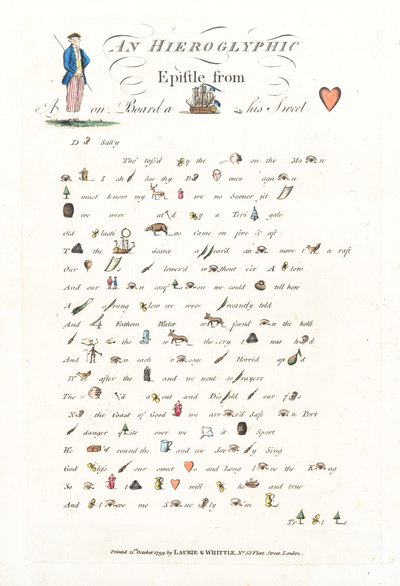 AN HIEROGLYPHIC
Epistle from
A on Board a his Sweet
D Sally
Tho' tofs'd y the on the Ma n
I sh See thy D once aga n
must know my we no Sooner set
we were at d y a Teri gale
Old lasti as Came on fore & aft
T the scarce a heard an move t a raft
Our s lower'd w thout e'er A low
And our n conf s on we could tell how
A sprang low we were resently told
And 4 Fathom Water w found n the hold
the w the cry was h d
And n each r sage Horrid ap d
W after the and we went to rayers
The d a out and Dis ld our f s
N the Coast of Good we arr d Safe n Port
danger ite over we it Sport
We d round the and we Jov y Sing
God lefs our sweet s and Long l ve the K ng
So t will ho and true
And l eve me S ncer ly m
Tr l s
Printed 12th October 1799, by LAURIE & WHITTLE, No. 53 Fleet Street, London.